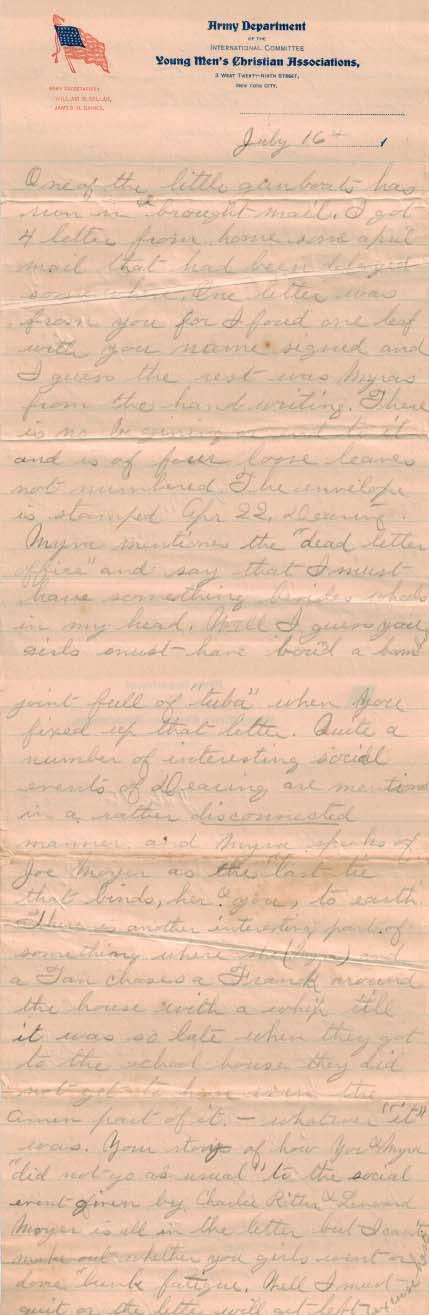 Army Department
OF THE
INTERNATIONAL COMMITTEE
Young Men's Christian Associations,
3 WEST TWENTY-NINTH STREET,
NEW YORK CITY.
ARMY SECRETARIES
WILLIAM B. MILLAR,
JAMES H. BANKS.
July 16th 1
One of the little gunboats has
run in & brought mail. I got
4 letter from home some april
mail that had been delayed
some where. One letter was
from you for I foud one leaf
with you name signed and
I guess the rest was Myras
from the hand writing. There
is no begining or end to it
and is of four loose leaves
not numbered. The envilope
is stamped Apr 22, Dearing.
Myra mentiones the "dead letter
office" and say that I must
have something besides wheels
in my head. Well I guess you
girls must have had a
joint full of "tuba" when you
fixed up that letter. Quite a
number of interesting social
events of Dearing are mention
in a rather disconnected
manner and Myra speaks of
Joe Moyer as the "last tie
that binds, her & you, to earth.
There is another interesting part of
something where she (Myra) and
a Fan chases a Frank around
the house with a whip till
it was so late when they got
to the school house they did
not get to hear even the
amen part of it. - whatever "it"
was. Your story of how You & Myra
"did not go as usual" to the social
event given by Charlie Ritter & Lenward
Moyer is all in the letter but I can't
make out whether you girls went or
done "bunk fatigue. Well I must
quit or the letter will get left